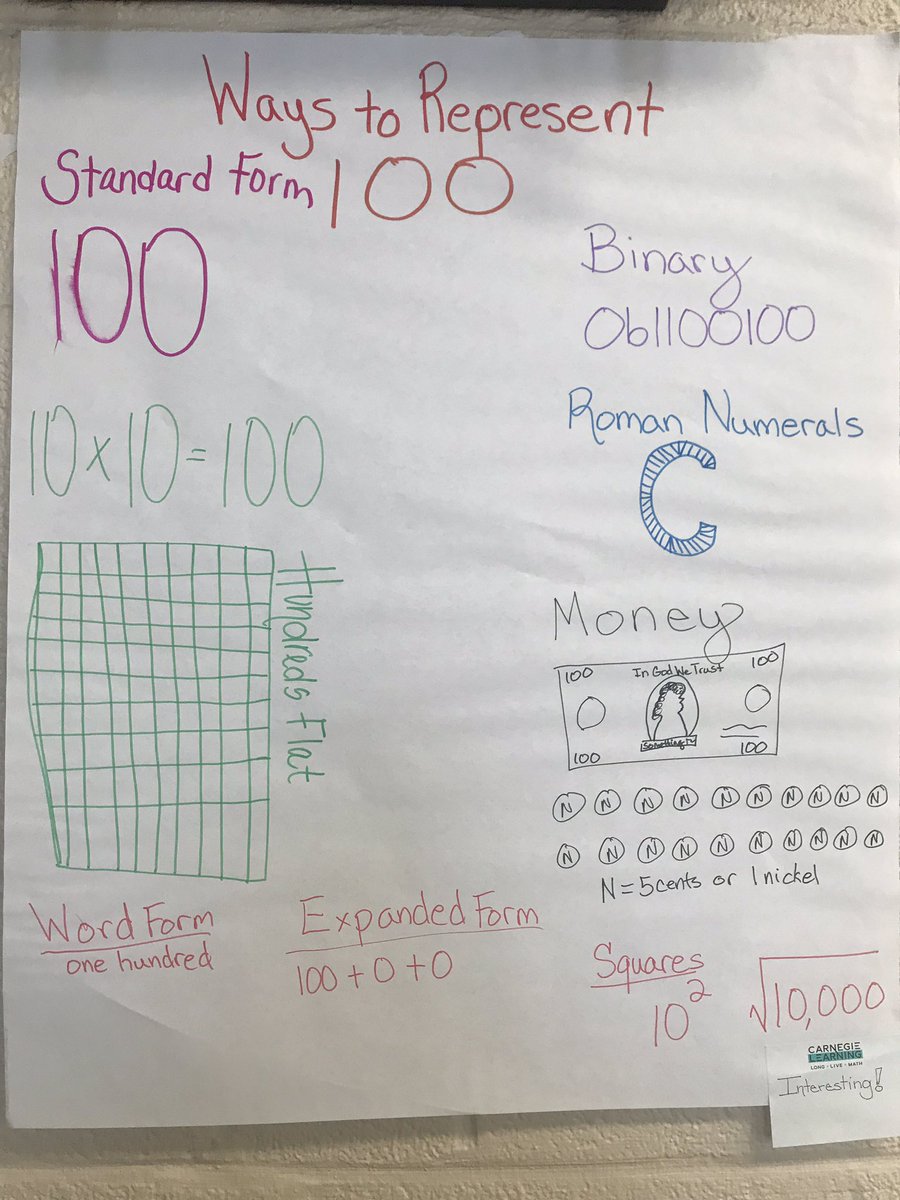 Ways to Represent
100
Standard Form
100
10 x 10 = 100
Hundreds Flat
Word Form
one hundred
Expanded Form
100 + 0 + 0
Binary
0b1100100
Roman Numerals
C
Money
100 In God We Trust 100
100 100
N N N N N N N N N N
N N N N N N N N N N
N = 5 cents or 1 nickel
Squares
10² √10,000
CARNEGIE
LEARNING
LONG • LIVE • MATH
Interesting!